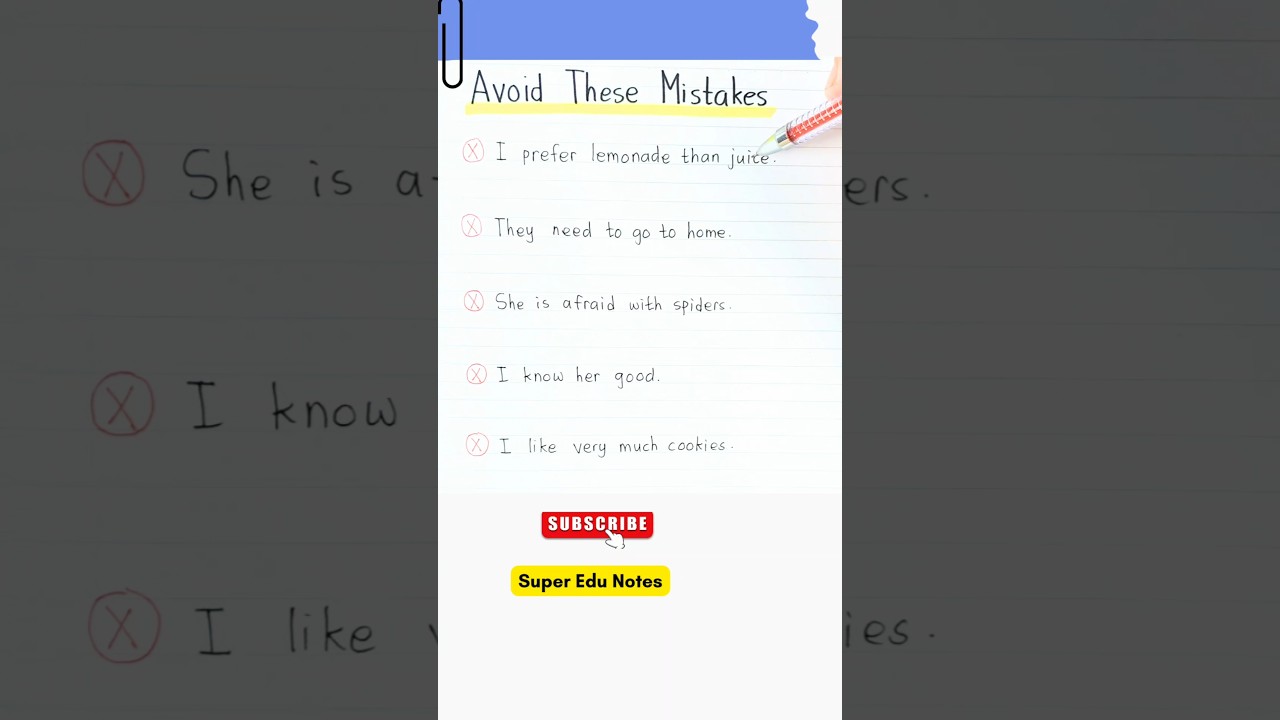 Avoid These Mistakes
X I prefer lemonade than juice.
X They need to go to home.
X She is afraid with spiders.
X I know her good.
X I like very much cookies.
SUBSCRIBE
Super Edu Notes
X She is a
ers.
X I know
X I like
ies.